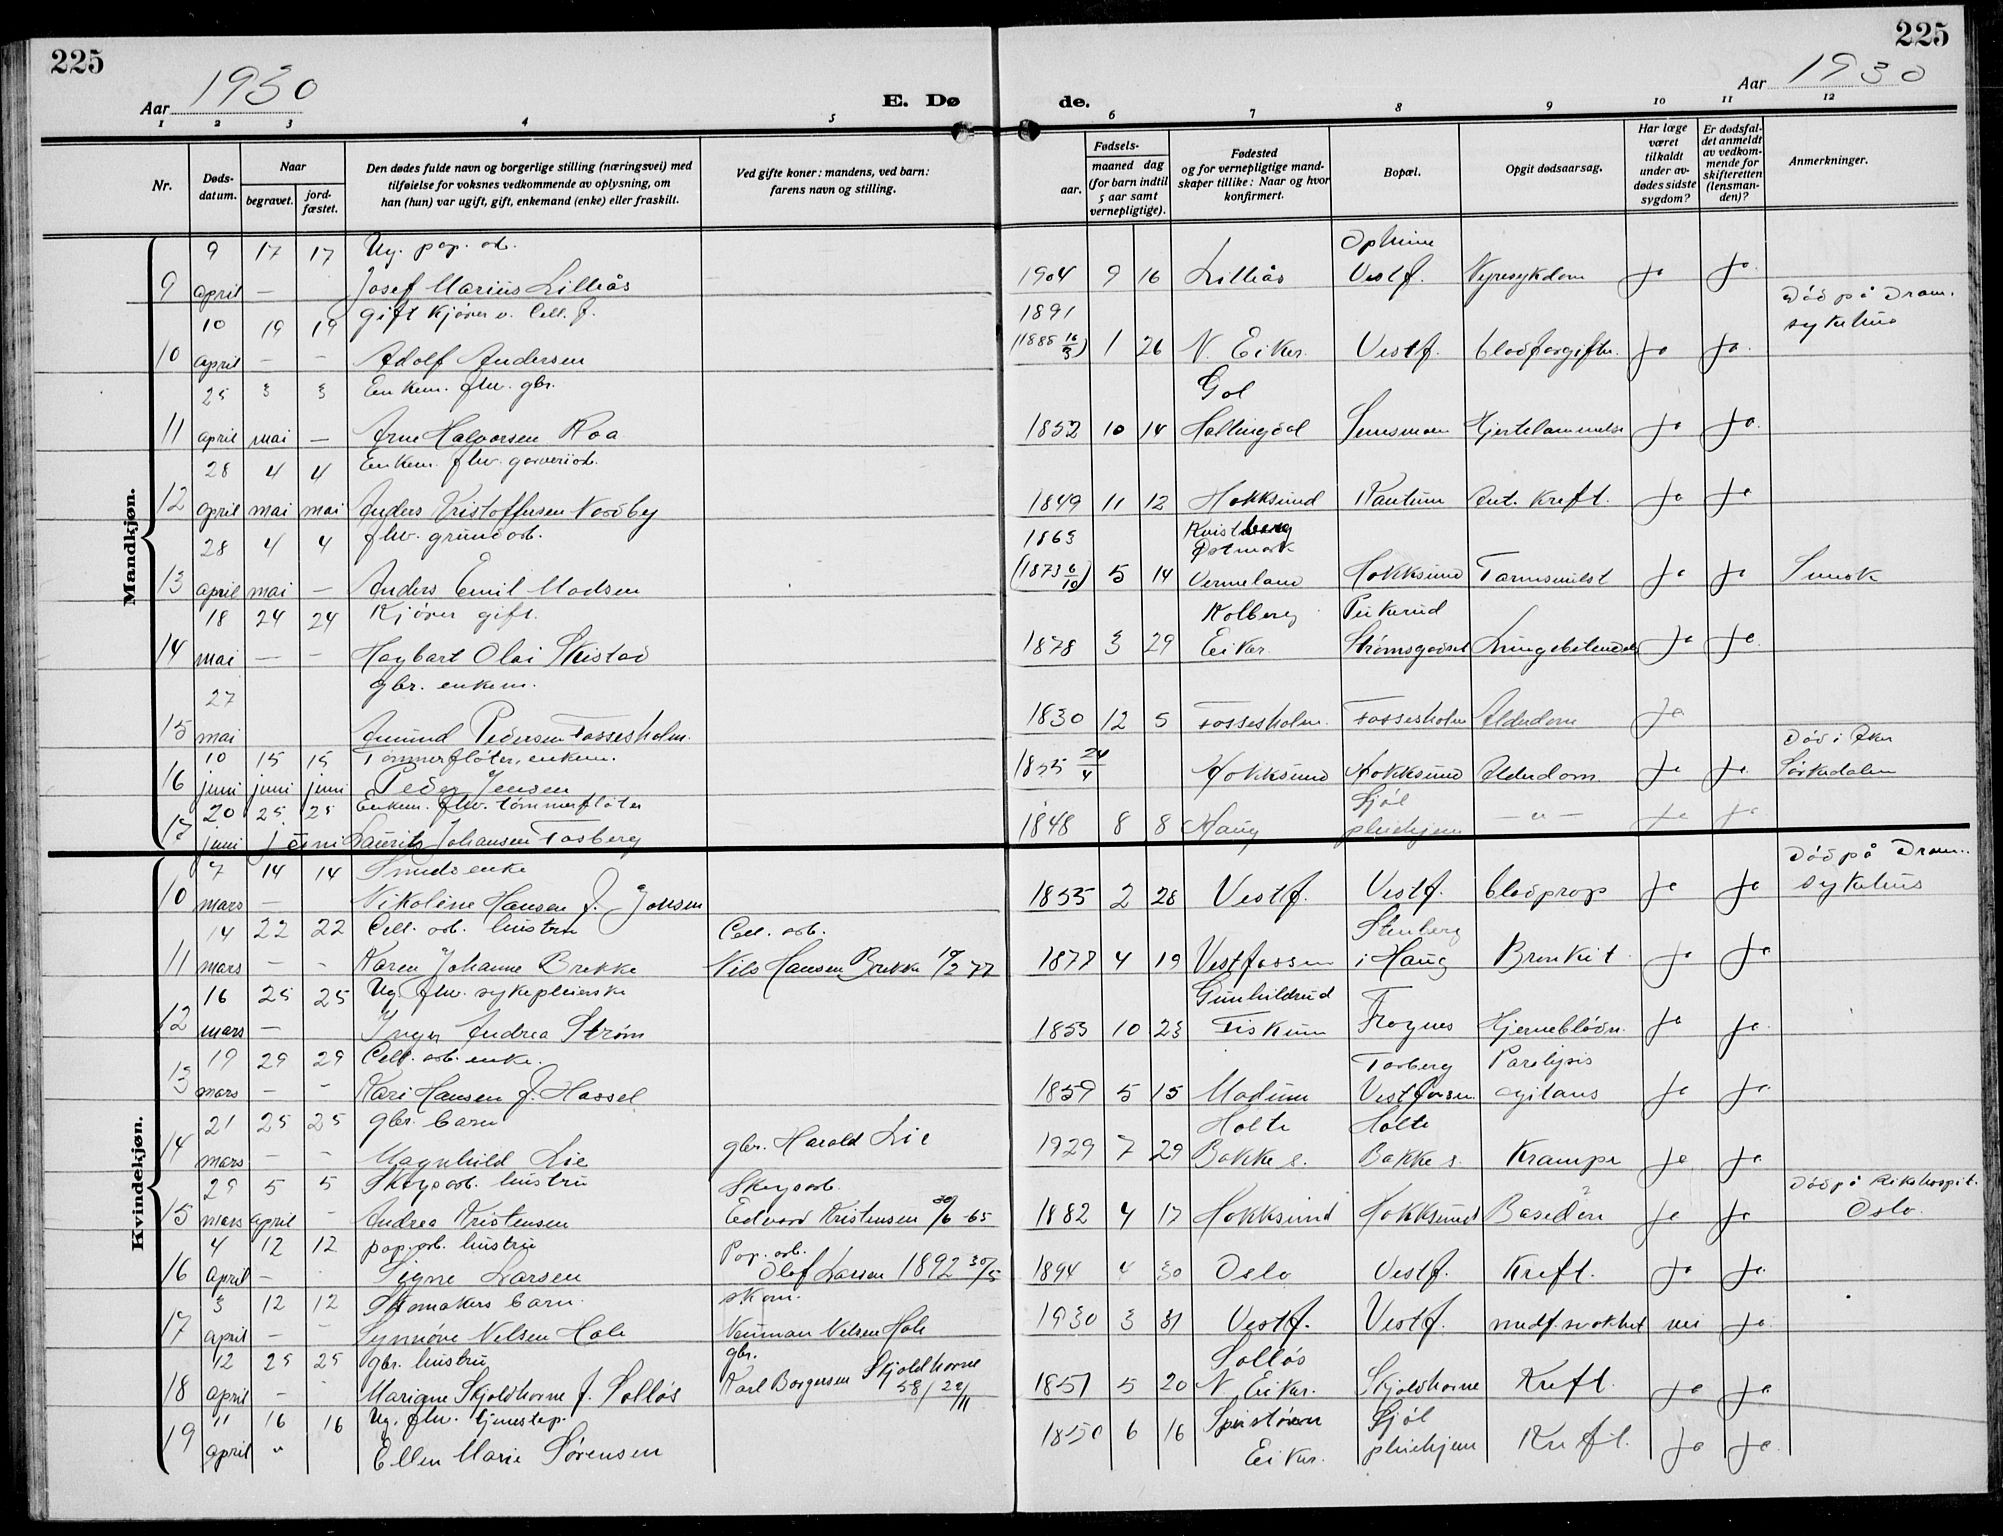 225
225
Aar 1930
E. Dø
de.
Aar 1930
1 2 3 4 5 6 7 8 9 10 11 12
Nr.
Døds-
datum.
Naar
begravet.
jord-
fæstet.
Den dødes fulde navn og borgerlige stilling (næringsvei) med
tilføielse for voksnes vedkommende av oplysning, om
han (hun) var ugift, gift, enkemand (enke) eller fraskilt.
Ved gifte koner: mandens, ved barn:
farens navn og stilling.
Fødsels-
aar.
maaned dag
(for barn indtil
5 aar samt
vernepligtige).
Fødested
og for vernepligtige mand-
skaper tillike: Naar og hvor
konfirmert.
Bopæl.
Opgit dødsaarsag.
Har læge
været
tilkaldt
under av-
dødes sidste
sygdom?
Er dødsfal-
det anmeldt
av vedkom-
mende for
skifteretten
(lensman-
den)?
Anmerkninger.
Mandkjøn.
9 17 17 Ug. pap. arb.
9 april — Josef Marius Lilleås 1904 9 16 Lilleås Vestf. Nyresykdom Ja Ja
10 19 19 gift kjører v. Cell. f. 1891 Død på Dram.
sykehus
10 april — — Adolf Andersen (1885 16/3) 1 26 N. Eiker Vestf. blodforgiftn. Ja Ja
25 3 3 Enkem. fhv. gbr. Gol
11 april mai — Arne Halvorsen Roa 1852 10 14 Hallingdal Hjertelammelse Ja Ja
28 4 4 Enkem. fhv. garveriarb.
12 april mai mai Anders Kristoffersen Nordby 1849 11 12 Hokksund Ant. Kreft. Ja Ja
28 4 4 fhv. grundarb. 1863 Østmark
13 april mai — Anders Emil Madsen (1873 6/10) 5 14 Vermeland Hokksund Tarmsmilst Ja Ja Svensk
18 24 24 Kjører gift. Kolberg
14 mai — — Hagbart Olai Skistad 1878 3 29 Eiker Strømsgodset Lungebetendels Ja Ja
27 gbr. enkem.
15 mai Amund Pedersen Fossesholm. 1830 12 5 Fossesholm. Fossesholm Alderdom Ja
10 15 15 Tømmerfløter, enkem. Død i Aker
16 juni juni juni Peder Jensen 1855 24/4 Hokksund Hokksund Alderdom Ja Ja Sørkedalen
20 25 25 Enkem. fhv. tømmerfløter
17 juni juni Laurits Johansen Fosberg 1848 8 8 Haug pleiehjem — " — Ja Ja
Kvindekjøn.
7 14 14 Smeds enke Død på Dram.
10 mars — Nikoline Hansen f. Jonsen 1855 2 28 Vestf. Vestf. blodprop Ja Ja sykehus
14 22 22 Cell. arb. hustru Cell. arb. Stenberg
11 mars — — Karen Johanne Brekke Nils Hansen Brekke 1877 4 19 Vestfossen i Haug Bronkit Ja Ja
16 25 25 Ug. fhv. sykepleierske Gunhildrud
12 mars — Inger Andrea Strøm 1853 10 23 Fiskum Frognes Hjerneblødn. Ja Ja
19 29 29 Cell. arb. enke. Paralysis
13 mars — — Kari Hansen f. Hassel 1859 5 15 Modum Vestfossen agitans Ja Ja
21 25 25 gbr. barn Holte Holte
14 mars — — Magnhild Lie gbr. Harald Lie 1929 7 29 Bakke s. Bakke s. Krampe Ja Ja
29 5 5 Skogsarb. hustru Skogsarb. Død på Rikshospit.
15 mars april — Andrea Kristensen Edvard Kristensen 30/6-65 1882 4 17 Hokksund Hokksund Basedow Ja Ja Oslo.
4 12 12 pap. arb. hustru Pap. arb.
16 april — Signe Larsen Olaf Larsen 1892 30/5 1894 4 30 Oslo Vestf. Kreft. Ja Ja
3 12 12 Skomakers barn. skom.
17 april — — Synnøve Nelsen Hals Neuman Nelsen Hals 1930 3 31 Vestf. Vestf. medf. svakhet nei Ja
12 25 25 gbr. hustru gbr. Solløs
18 april — Mariane Skjoldhorne f. Solløs Karl Borgersen Skjoldhorne 58/22/11 1851 5 20 N. Eiker. Skjoldhorne Kreft. Ja Ja
11 16 16 Ug. fhv. tjenestep.
19 april " Ellen Marie Sørensen 1850 6 16 Eiker. pleiehjem Kreft. Ja Ja